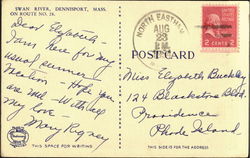 SWAN RIVER, DENNISPORT, MASS.
ON ROUTE NO. 28.
Dear Elizabeth -
I am here for my
usual summer
vacation - Hope you
are well - With all
my love -
Mary
THIS SPACE FOR WRITING
NORTH EASTHAM
AUG
28
MASS.
2 CENTS 2
POST CARD
Miss Elizabeth Buckley
124 Blackstone Blvd.
Providence
Rhode Island
THIS SIDE IS FOR ADDRESS